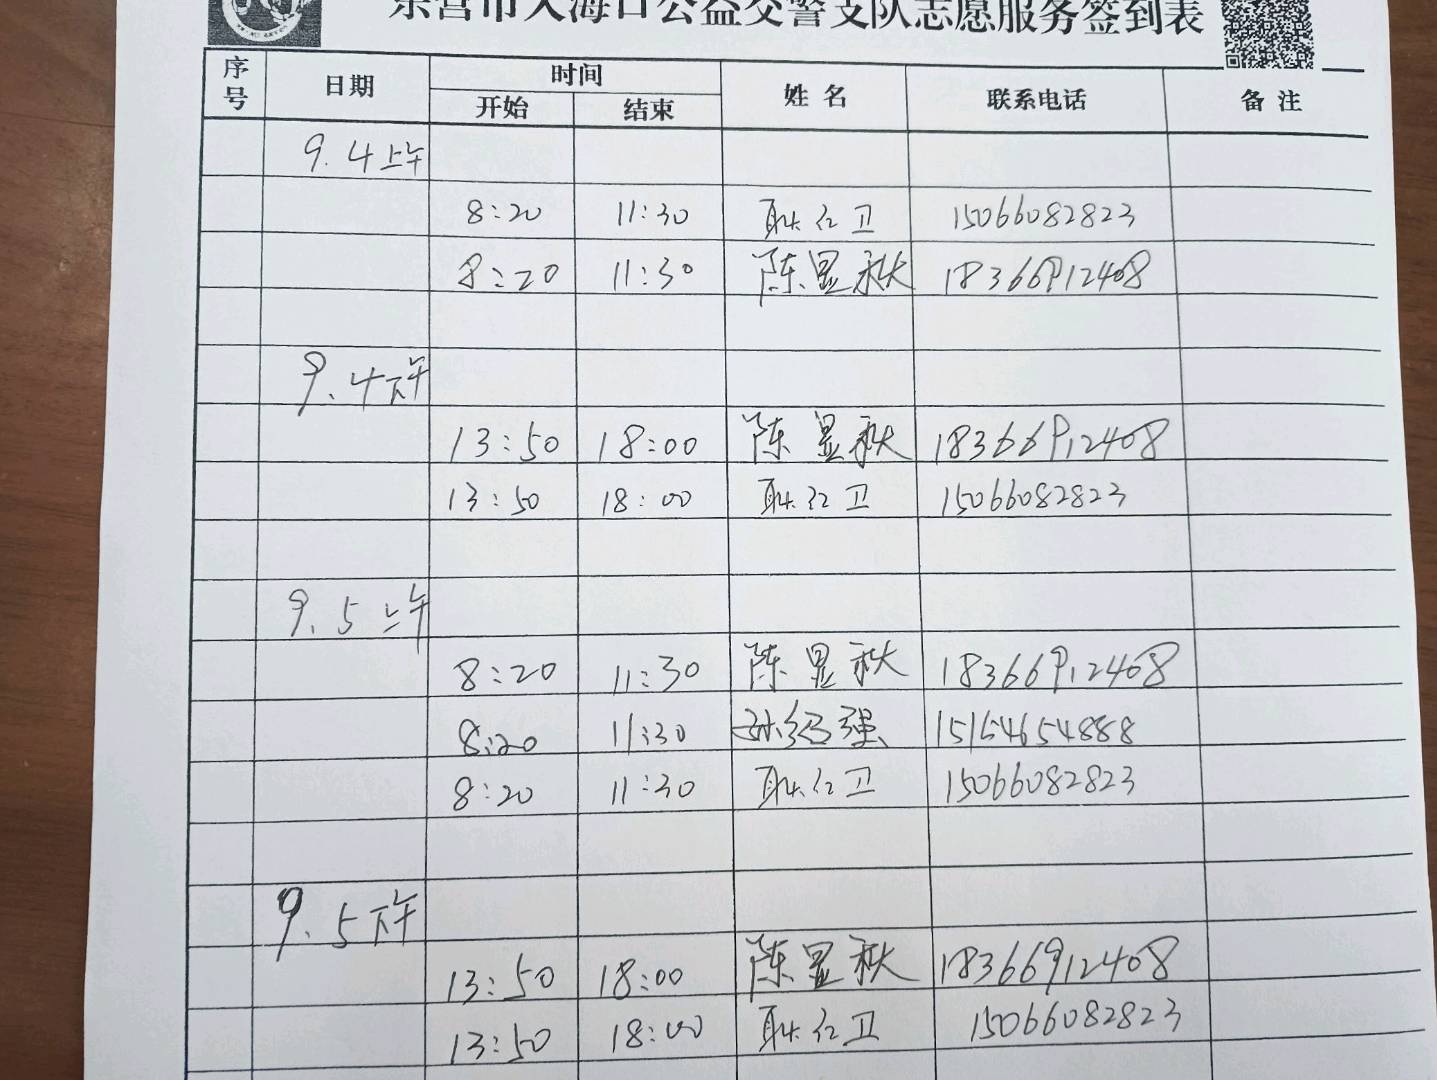 东营市大海口公益交警支队志愿服务签到表
序号 日期 时间 姓名 联系电话 备注
开始 结束
9.4上午
8:20 11:30 耿红卫 15066082823
8:20 11:30 陈显秋 18366912408
9.4下午
13:50 18:00 陈显秋 18366912408
13:50 18:00 耿红卫 15066082823
9.5上午
8:20 11:30 陈显秋 18366912408
8:20 11:30 孙绍强 15154654888
8:20 11:30 耿红卫 15066082823
9.5下午
13:50 18:00 陈显秋 18366912408
13:50 18:00 耿红卫 15066082823